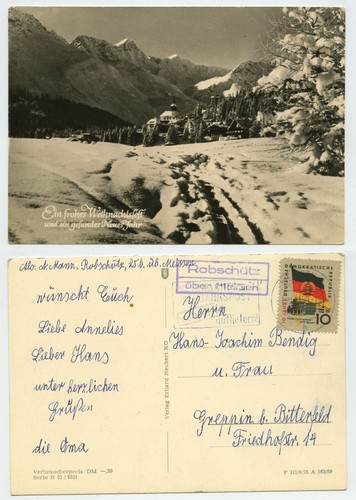 Ein frohes Weihnachtsfest
und ein gesundes Neues Jahr
Abs. A. Mann, Robschütz, 25 b, üb. Meissen
wünscht Euch
Liebe Annelies
Lieber Hans
unter herzlichen
Grüßen
die Oma
Robschütz
über Meißen
DEUTSCHE DEMOKRATISCHE REPUBLIK
10
Herrn
Hans-Joachim Bendig
u. Frau
Greppin b. Bitterfeld
Friedhofstr. 14
Verlag Erhard Neubert KG
Verbraucherpreis DM -,20